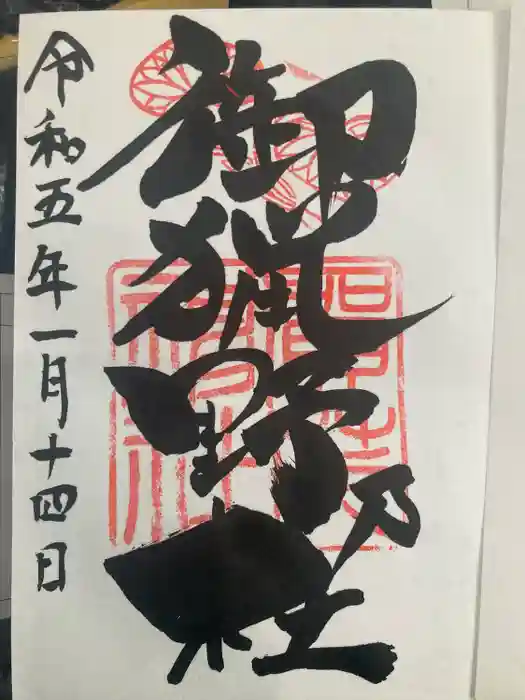 御猟野乃杜
令和五年一月十四日